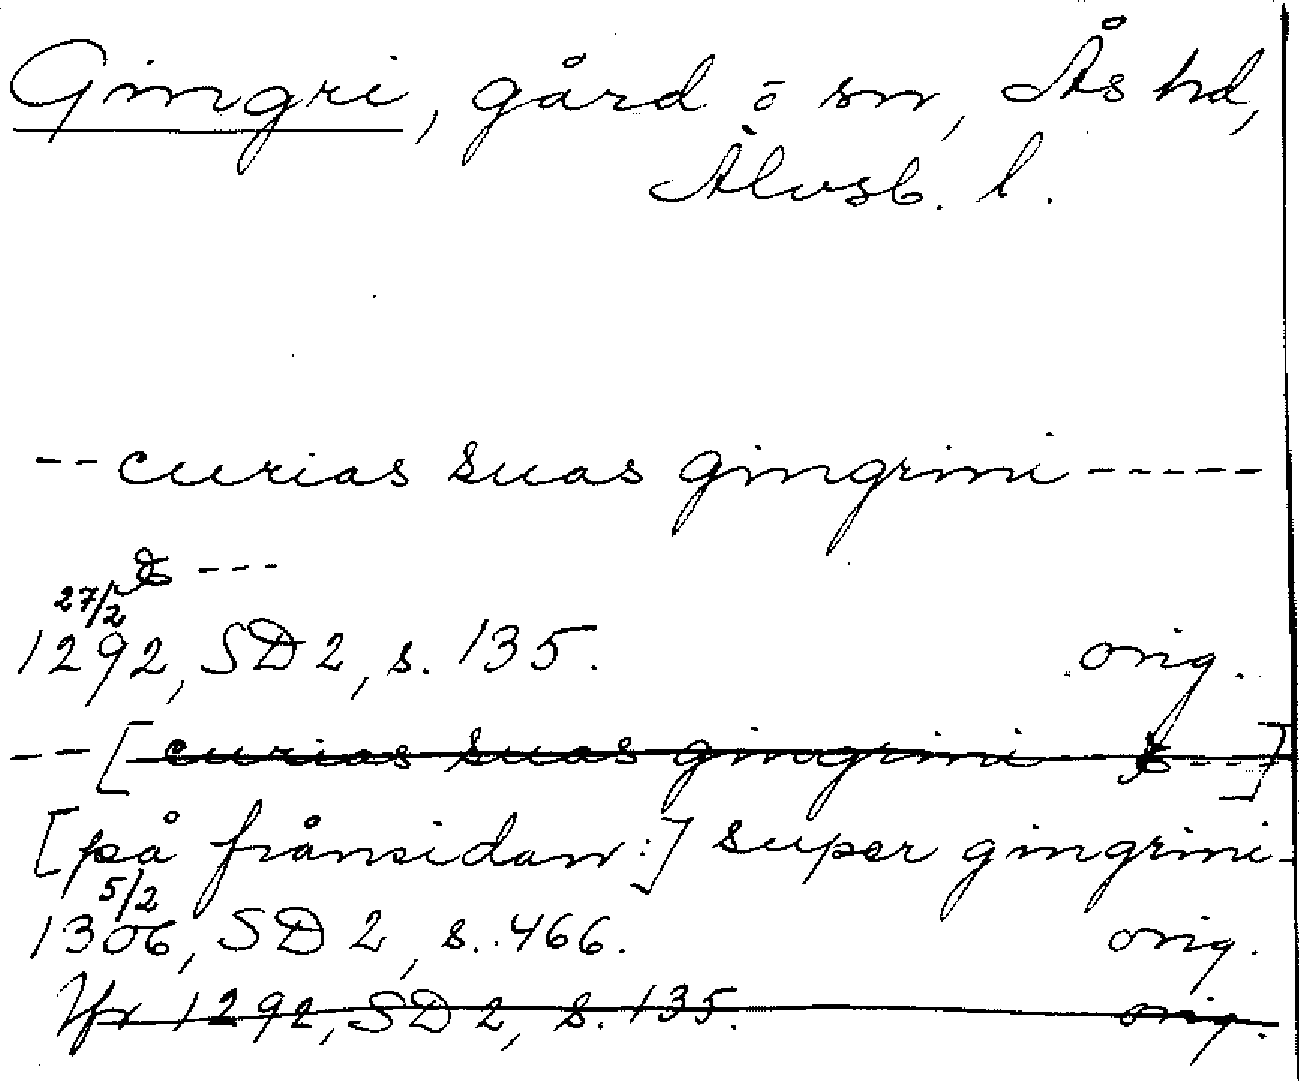 Gingri, gård o sn, Ås hd,
Älvsb. l.
-- curias suas gingrini -----
& ---
27/2
1292, SD 2, s. 135. orig.
-- [curias suas gingrini & ---]
[på frånsidan:] super gingrini-
5/2
1306, SD 2, s. 466. orig.
Jfr 1292, SD 2, s. 135. orig.